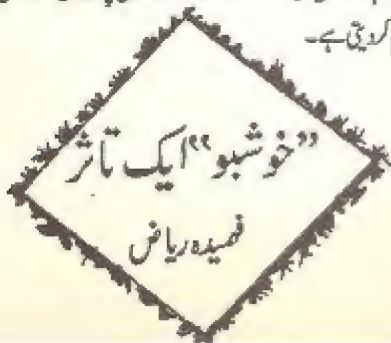 کر دیتی ہے۔
”خوشبو“ ایک تاثر
فہمیدہ ریاض